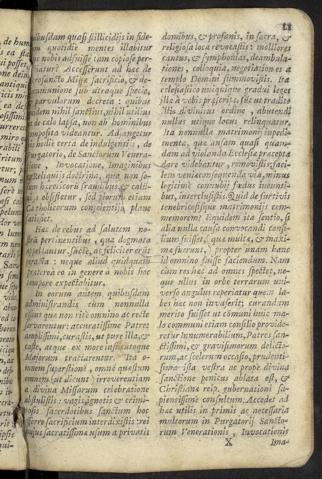 nibusdam quasi stillicidijs in fidem
quotidie mentes illabitur
nobis adfuisse tam copiose per-
Accesserunt ad hac de
defunctis Missæ sacrificio, & de
communione sub utraque specie,
& parvulorum decreta: quibus
quidem nihil sanctius, nihil utilius
è cælo lapsa, non ab hominibus
composita videantur. Adjungetur
hodie certa de indulgentijs, de
Purgatorio, de Sanctorum Venera-
tione, Invocatione, Imaginibus
Reliquijs doctrina, qua non so-
lum hæreticorum fraudibus, & calum-
nijs obsistetur, sed piorum etiam
Catholicorum conscientijs plane
satisfiet.
Hac de rebus ad salutem no-
stram pertinentibus, quæ dogmata
appellantur, facta, ac feliciter er-
neque aliud quidquam
præterea eo in genere à nobis hoc
tempore expectabitur.
In eorum autem quibusdam
administrandis cum nonnulla
essent quæ non ritè omnino ac recto
servarentur: accuratissimè Patres
amplissimi, curastis, ut purè illa, &
castè, atque ex more institutoque
Majorum tractarentur. Ita o-
mnem superstitionem, omnem quæstum
omnem irreverentiam
à divina Missarum celebratione
sustulistis: vagis, ignotis & crimi-
nosis sacerdotibus sanctum hoc
ferre sacrificium interdixistis: rei
hujus sacratissimæ usum à privatis
domibus, & profanis, in sacra, &
religiosa loca revocastis: molliores
cantus, & symphonias, deambula-
tiones, colloquia, negotiationes à
templo Domini summovistis. Ita
ecclesiastico cuique gradui leges
illæ à vobis præscriptæ sunt ut traditi
illis divinitus ordine, abutendi
nullus utique locus relinquatur.
Ita nonnulla matrimonij impedi-
menta, quæ ansam quasi quan-
dam ad violanda Ecclesiæ præcepta
dare videbantur, removistis; faci-
lem veniæ consequendæ viam, minus
legitimè connubij fædus ineunti-
bus, intercludistis. Quid de furtivis,
tenebrosisque matrimonijs com-
memorem? Equidem ita sentio, si
alia nulla causa convocandi conci-
lium fuisset, (quæ multæ, & maxi-
mæ fuerunt,) propter unam hanc
id omnino fuisse faciendum. Nam
cum res hæc ad omnes spectet, ne-
que ullus in orbe terrarum uni-
verso angulus reperiatur, quem la-
bes hæc non invaserit; curandum
merito fuisset ut communi huic ma-
lo communi etiam consilio provide-
retur innumerabilium, Patres san-
ctissimi, & gravissimorum delicto-
rum, ac scelerum occasio, prudentis-
sima ista vestra ac propè divina
sanctione penitus ablata est, &
Christianæ reip. gubernationi sa-
pientissimè consultum. Accedet ad
hæc utilis in primis ac necessaria
multorum in Purgatorij Sancto-
rum Venerationis, Invocationis
X Ima-